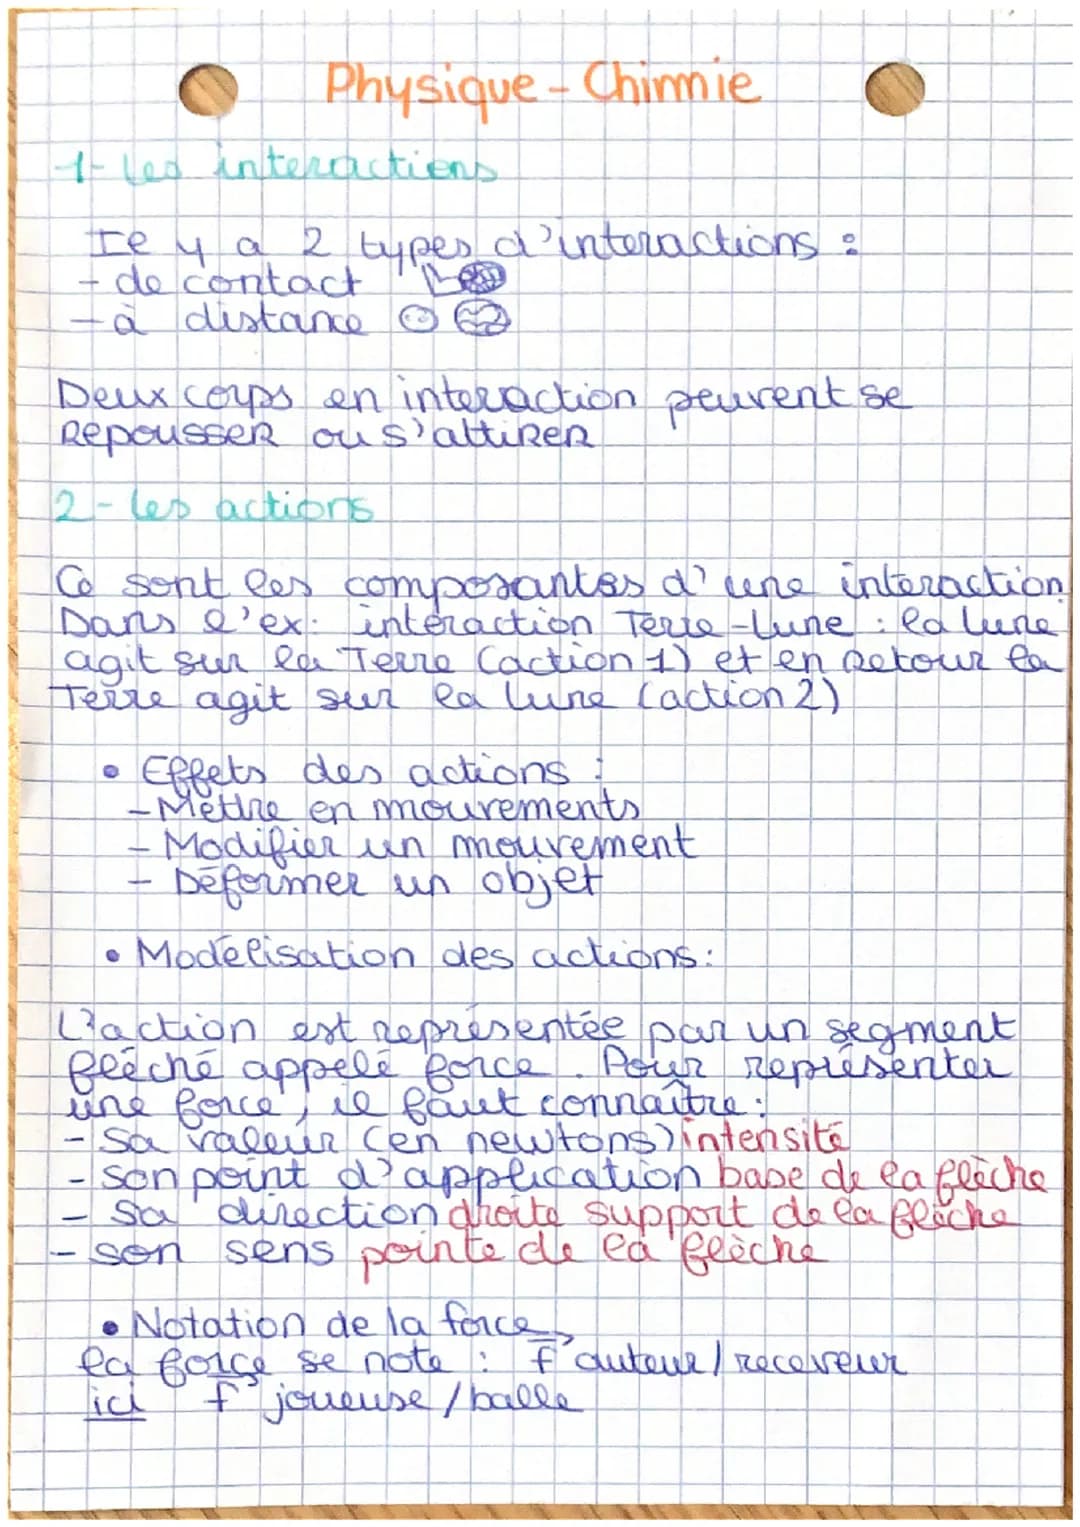 Physique - Chimie
1- les interactions
Il y a 2 types d'interactions :
- de contact
- à distance
Deux corps en interaction peuvent se
repousser ou s'attirer
2- les actions
Ce sont les composantes d'une interaction
Dans l'ex: intéraction Terre-lune : la lune
agit sur la Terre (action 1) et en retour la
Terre agit sur la lune (action 2)
• Effets des actions :
- Mettre en mouvements
- Modifier un mouvement
- Déformer un objet
• Modélisation des actions:
L'action est représentée par un segment
fléché appelé force. Pour représenter
une force, il faut connaître :
- sa valeur (en newtons) intensité
- son point d'application base de la flèche
- sa direction droite support de la flèche
- son sens pointe de la flèche
• Notation de la force
la force se note : F auteur / receveur
ici F joueuse / balle